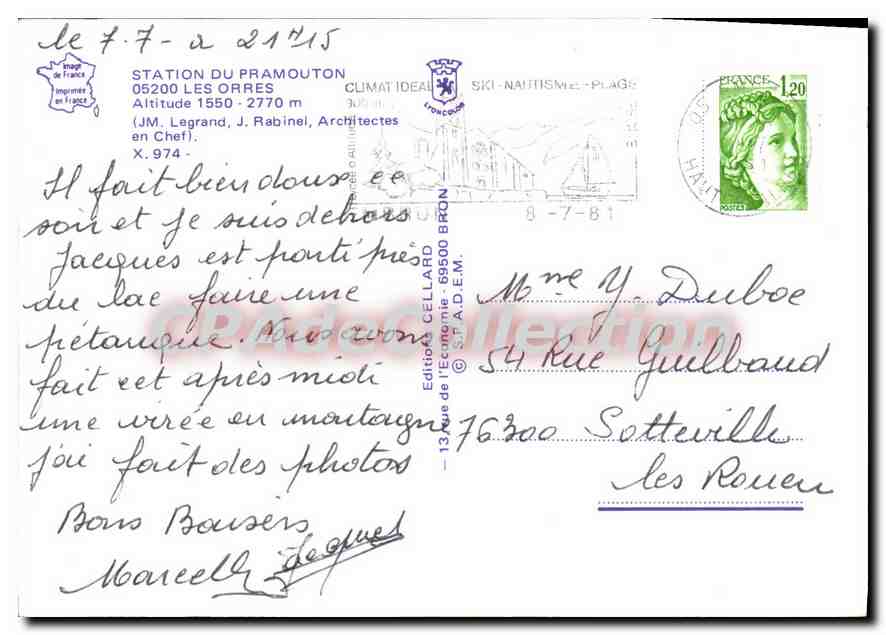 le 7.7- a 21H15
Image
de France
Imprimée
en France
STATION DU PRAMOUTON
05200 LES ORRES
Altitude 1550 - 2770 m
(JM. Legrand, J. Rabinel, Architectes
en Chef).
X. 974 -
LYONCOLOR
CLIMAT IDEAL SKI - NAUTISME - PLAGE
8 -7-81
05
HAUT
FRANCE 1,20
POSTES
Il fait bien doux ce
soir et je suis dehors
Jacques est parti près
du lac faire une
pétanque. Nous avons
fait cet après midi
une virée en montagne
j'ai fait des photos
Bons Baisers
Marcelle Jacques
Editions CELLARD
— 13, rue de l'Economie - 69500 BRON
© S.P.A.D.E.M.
Mme Y. Duboc
54 Rue Guilbaud
76300 Sotteville
les Rouen
CPAdeCollection